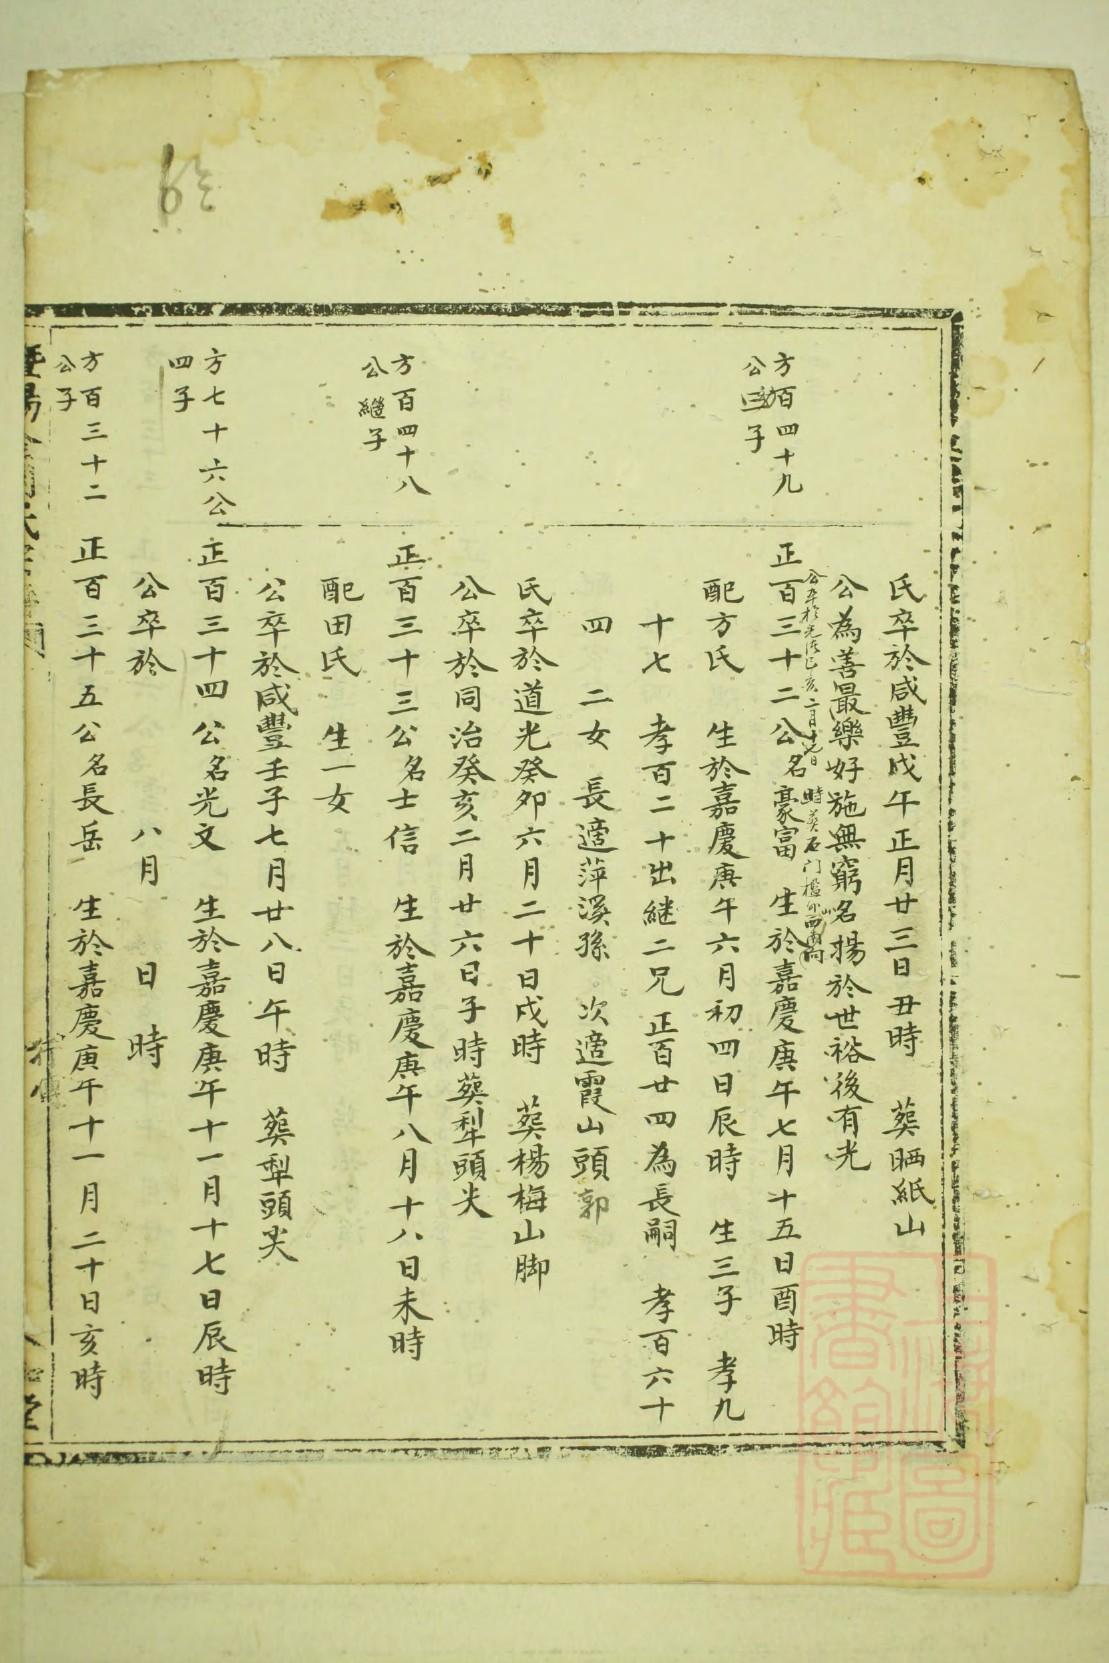 氏卒於咸豐戊午正月廿三日丑時　葬晒紙山
公為善最樂好施無窮名揚於世裕後有光
方百四十九
公三子
正百三十二公名豪富　生於嘉慶庚午七月十五日酉時
公卒於光緒己亥二月十七日　時葬石门檻
配方氏　生於嘉慶庚午六月初四日辰時　生三子　孝九
十七　孝百二十出継二兄　正百廿四為長嗣　孝百六十
四　二女　長適萍溪孫　次適霞山頭郭
氏卒於道光癸卯六月二十日戌時　葬楊梅山脚
公卒於同治癸亥二月廿六日子時葬犁頭尖
方百四十八
公繼子
正百三十三公名士信　生於嘉慶庚午八月十八日未時
配田氏　生一女
公卒於咸豐壬子七月廿八日午時　葬犁頭尖
方七十六公
四子
正百三十四公名光文　生於嘉慶庚午十一月十七日辰時
公卒於　八月　日　時
方百三十二
公子
正百三十五公名長岳　生於嘉慶庚午十一月二十日亥時
堂